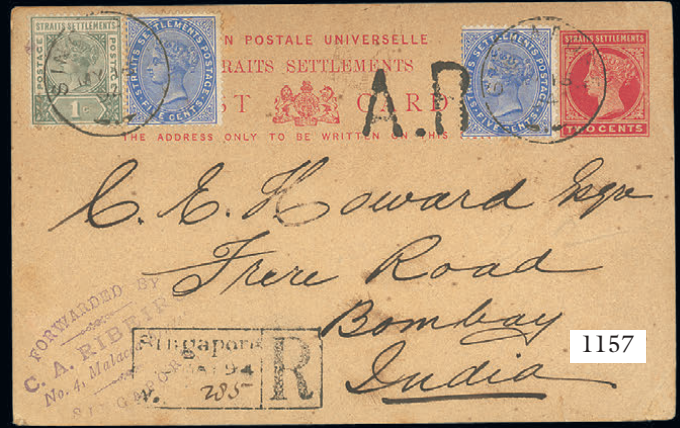 STRAITS SETTLEMENTS
POSTAGE POSTAGE
1c
STRAITS SETTLEMENTS POSTAGE
FIVE CENTS
N POSTALE UNIVERSELLE
RAITS SETTLEMENTS
ST CARD
THE ADDRESS ONLY TO BE WRITTEN ON THIS
A.R
FIVE CENTS
STRAITS SETTLEMENTS
TWO CENTS
C. E. Howard Esqr
Frere Road
Bombay
India
FORWARDED BY
C. A. RIBEIR
No. 4, Malac
Singapore
94
No. 285
R
1157